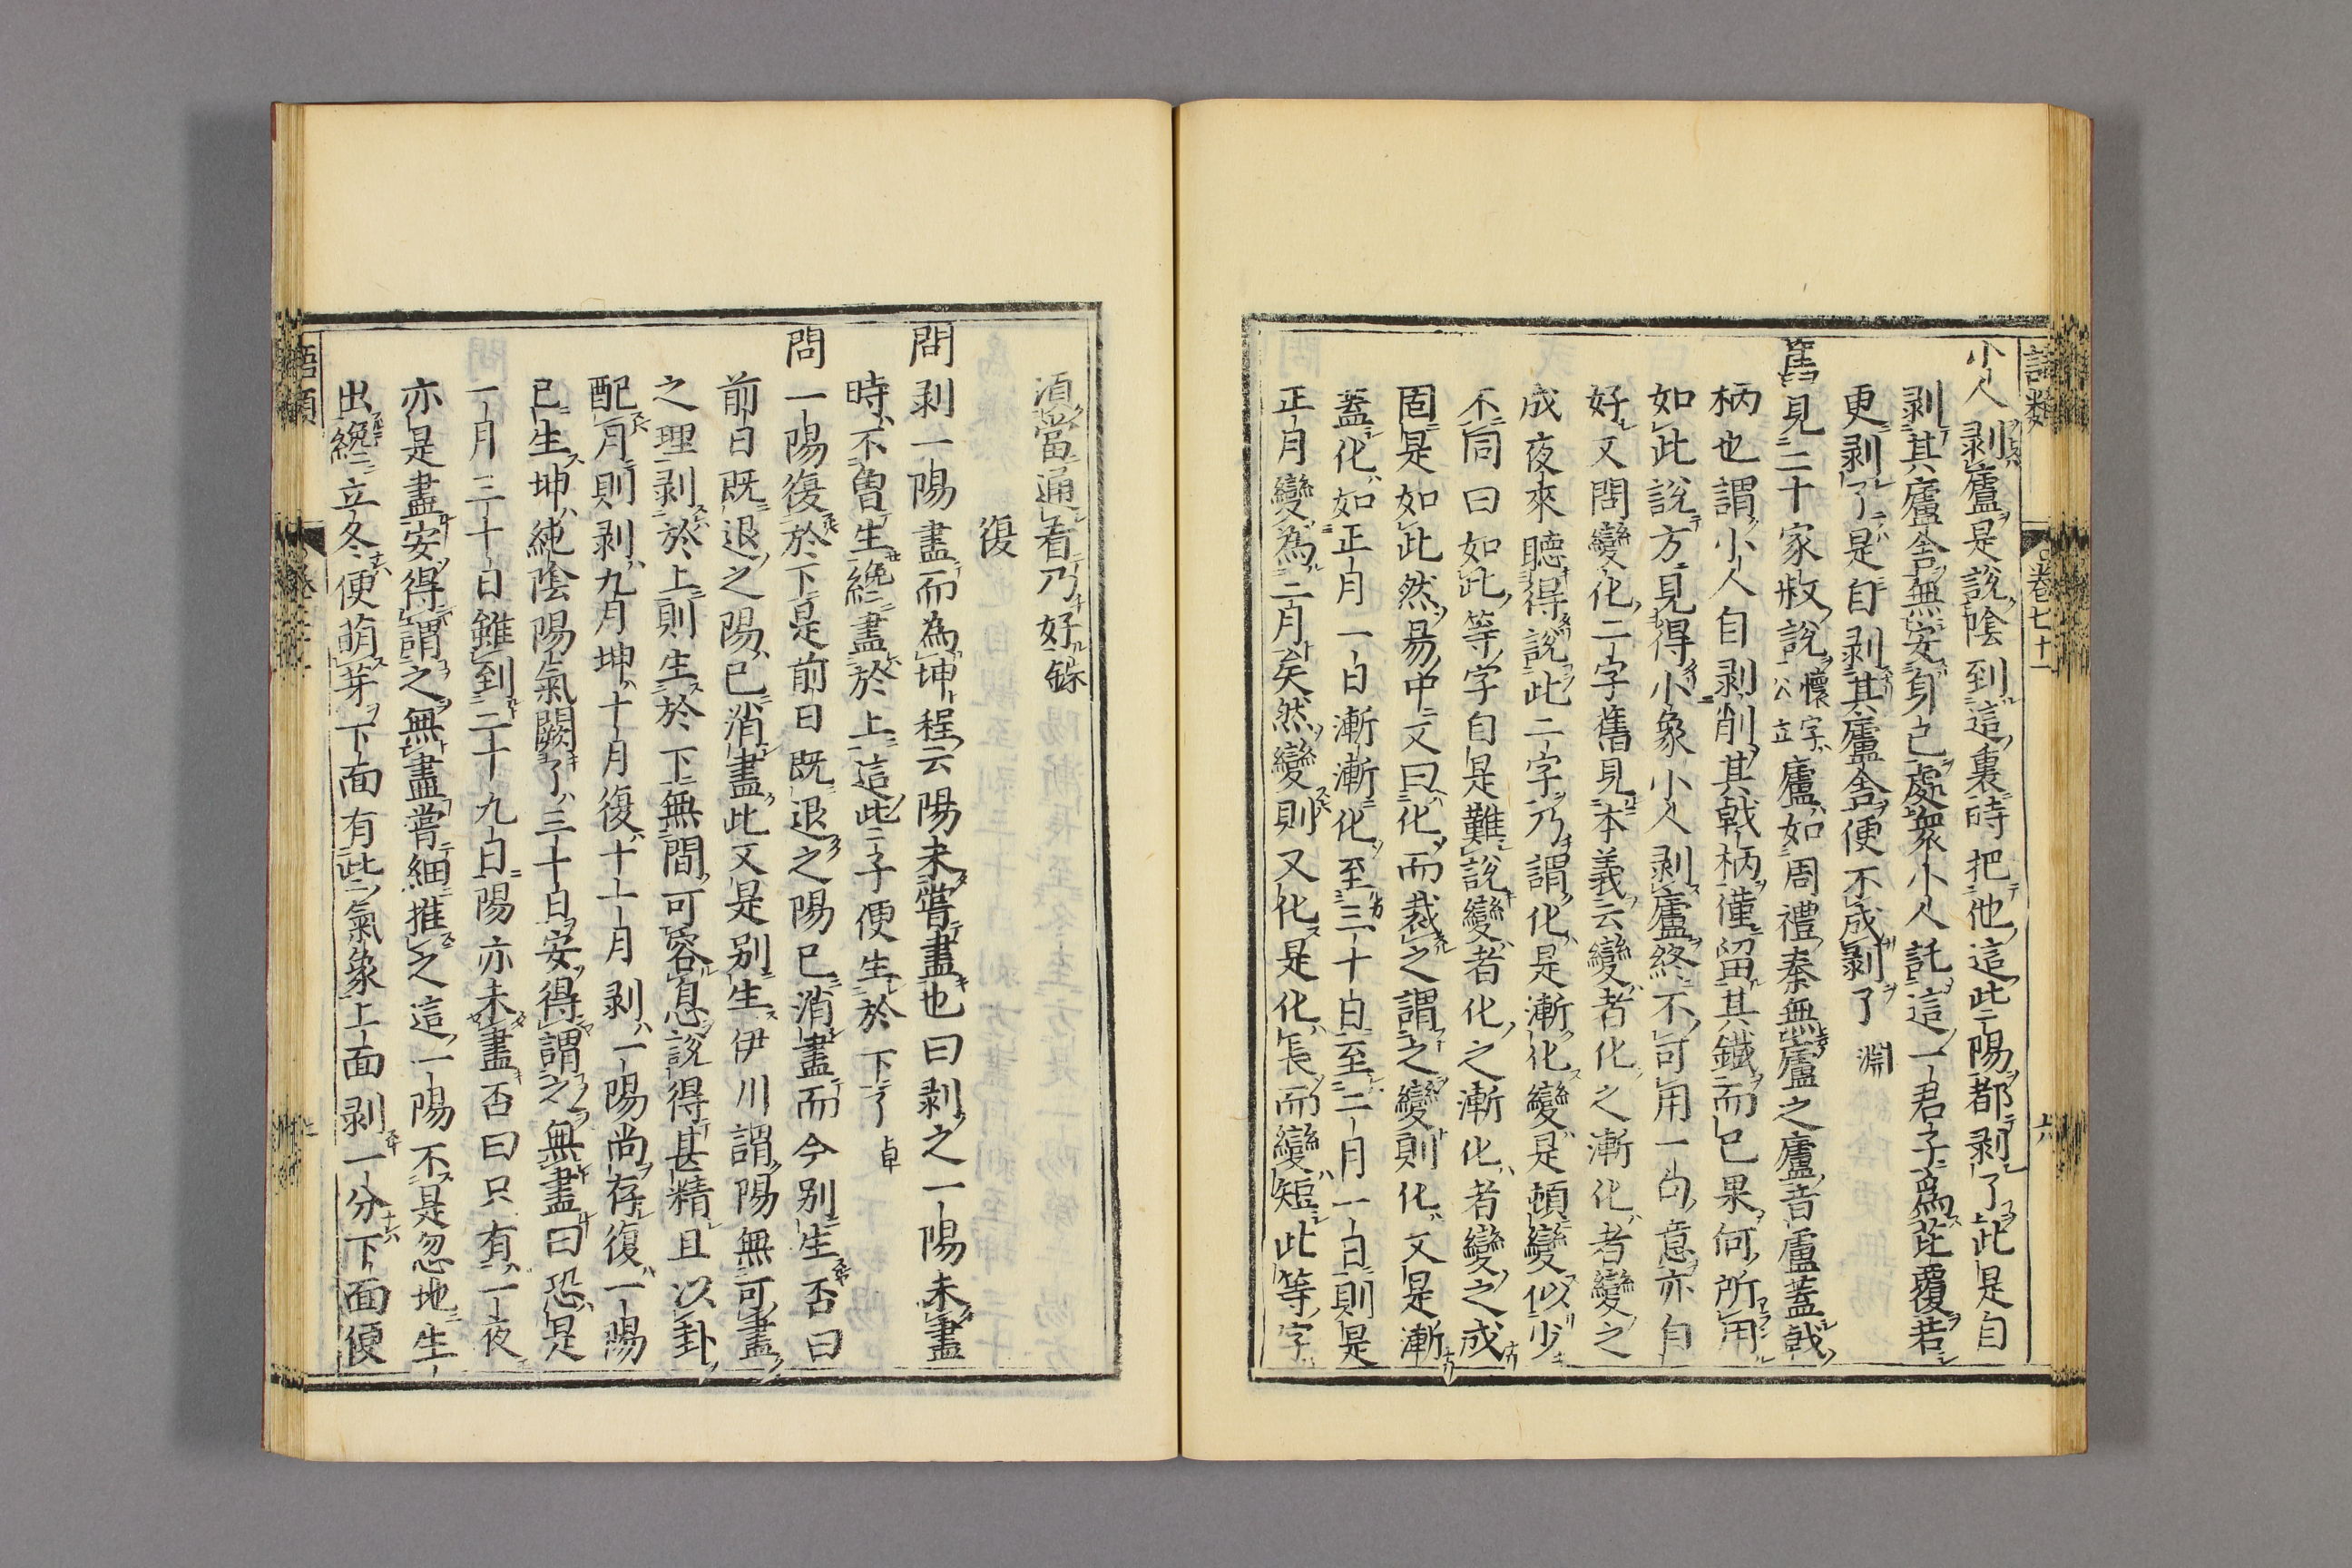 語類
卷七十一
六
小人剥廬是說陰到這裏時把他這些陽都剥了此是自
剥其廬舍無安身己處衆小人託這一君子爲芘覆若
更剥了是自剥其廬舍便不成剥了 淵
舊見二十家敝說 懷字公立 廬如周禮秦無廬之廬音盧蓋戟
柄也謂小人自剥削其戟柄僅留其鐵而已果何所用
如此說方見得小象小人剥廬終不可用一句意亦自
好又問變化二字舊見本義云變者化之漸化者變之
成夜來聽得說此二字乃謂化是漸化變是頓變似少
不同曰如此等字自是難說變者化之漸化者變之成
固是如此然易中又曰化而裁之謂之變則化又是漸
蓋化如正月一日漸漸化至三十日至二月一日則是
正月變為二月矣然變則又化是化長而變短此等字
須當通看乃好 銖
復
問剥一陽盡而為坤程云陽未嘗盡也曰剥之一陽未盡
時不曽生纔盡於上這些子便生於下了 卓
問一陽復於下是前日既退之陽已消盡而今别生否曰
前日既退之陽已消盡此又是别生伊川謂陽無可盡
之理剥於上則生於下無間可容息說得甚精且以卦
配月則剥九月坤十月復十一月剥一陽尚存復一陽
已生坤純陰陽氣闕了三十日安得謂之無盡曰恐是
一月三十日雖到二十九日陽亦未盡否曰只有一夜
亦是盡安得謂之無盡嘗細推之這一陽不是忽地生
出纔立冬便萌芽下面有些氣象上面剥一分下面便
語類